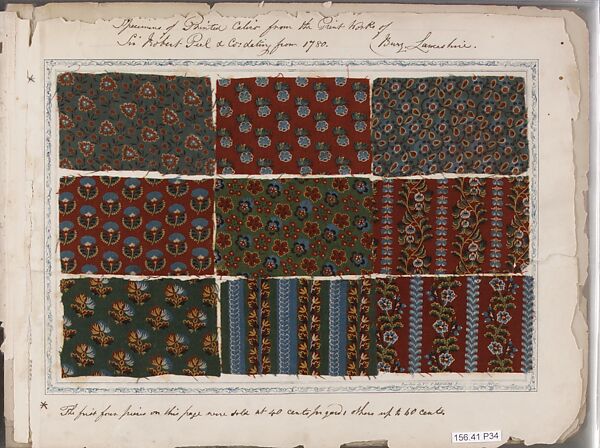 Specimens of Printed Calico from the Print Works of
Sir Robert Peel & Co dating from 1780. Bury, Lancashire.
* The first four pieces on this page were sold at 40 cents pr yard; others up to 60 cents
156.41 P34